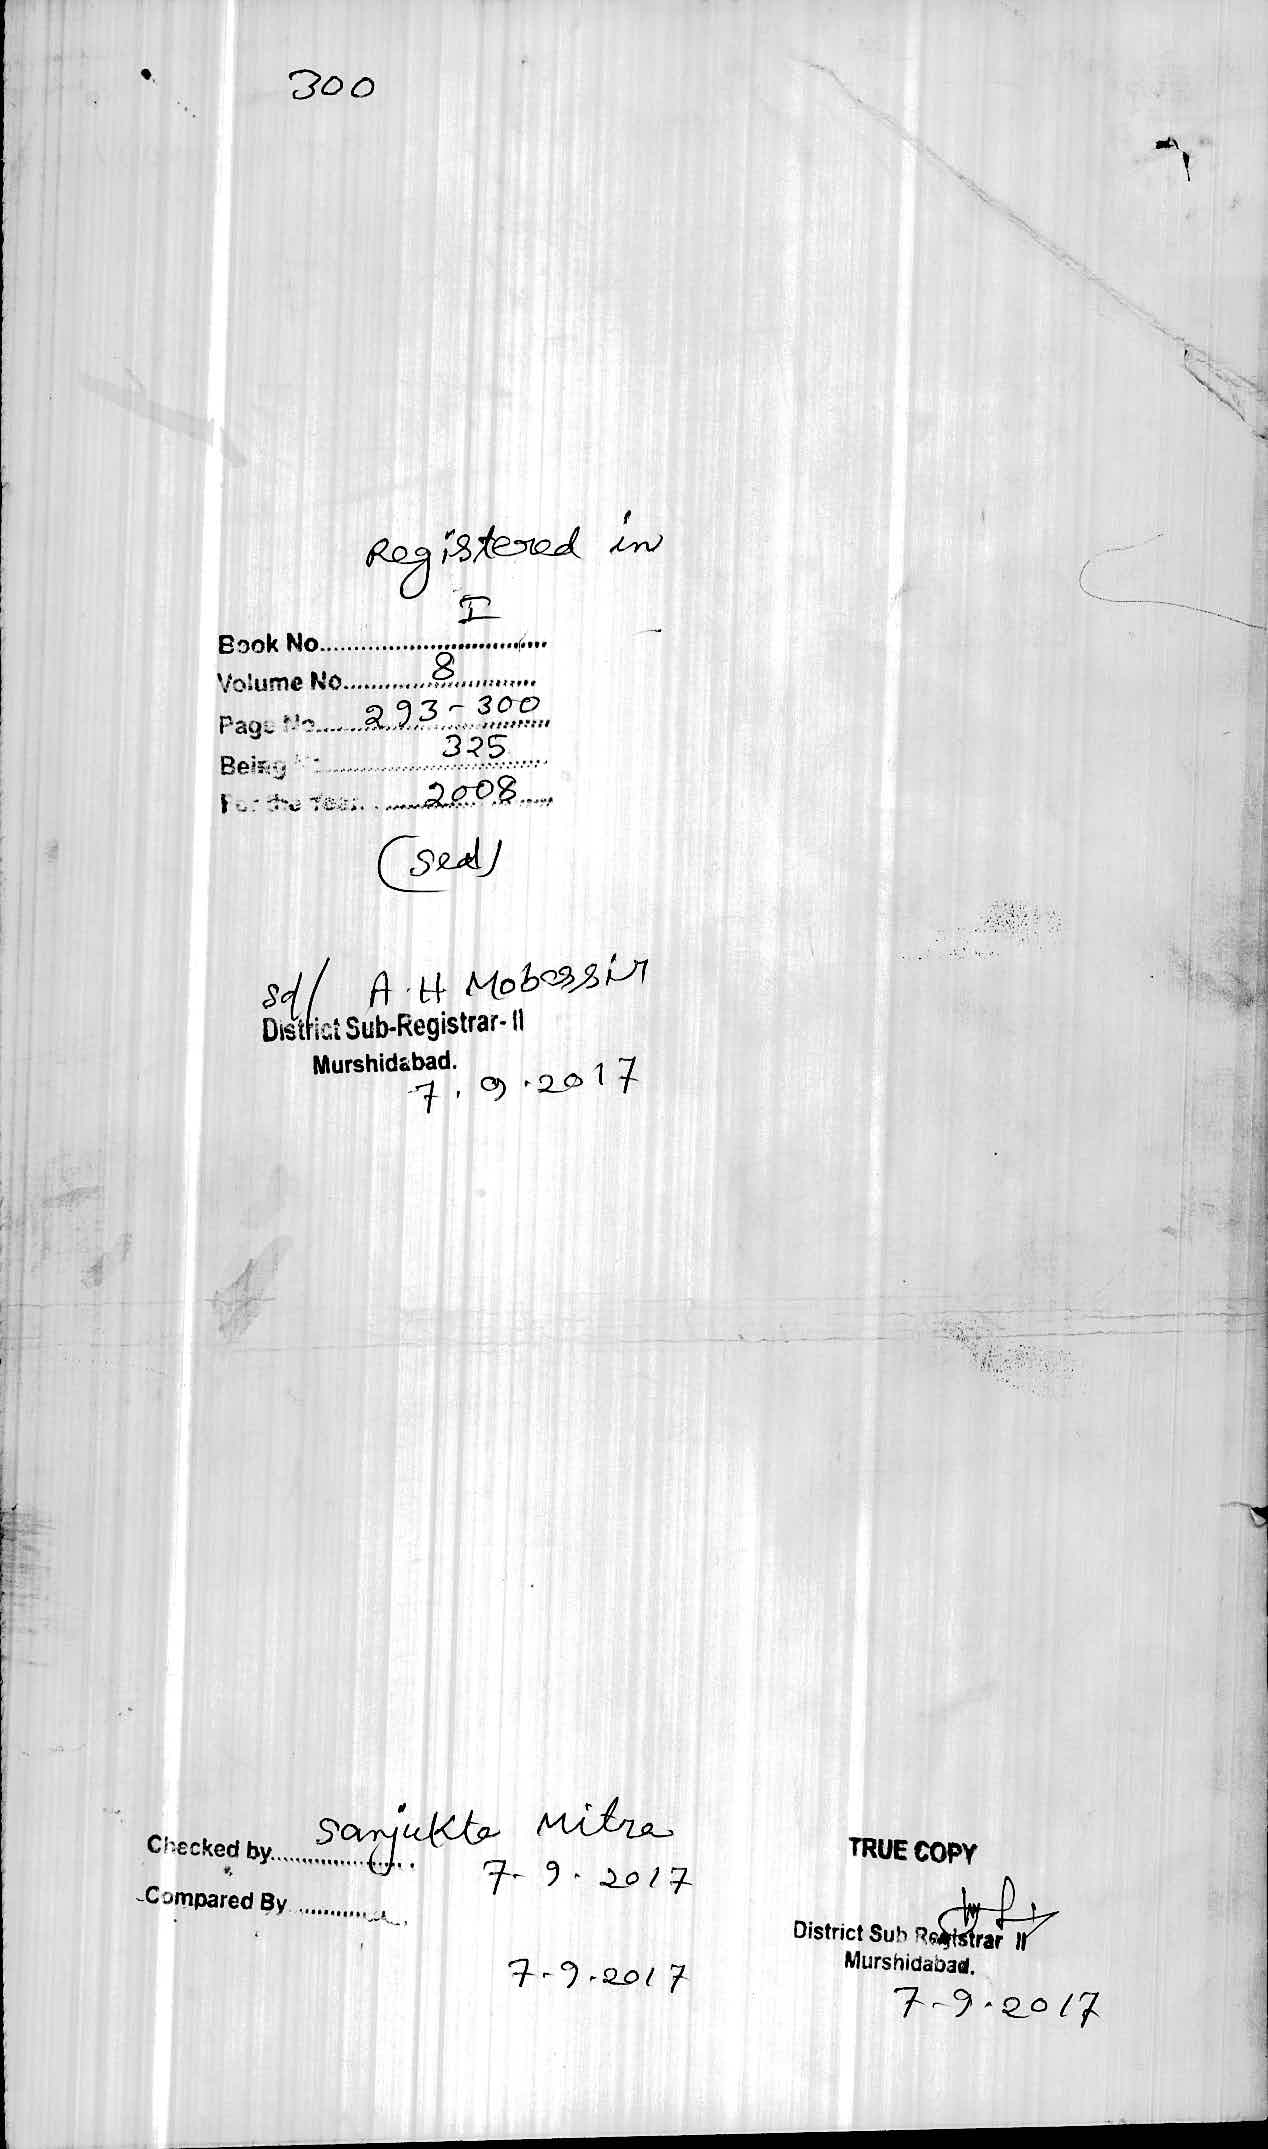 300
Registered in
Book No. I
Volume No. 8
Page No. 293-300
Being No. 325
For the Year 2008
(Seal)
Sd/ A.H Mobassir
District Sub-Registrar-II
Murshidabad.
7.9.2017
Checked by Sanjukta Mitra
7-9-2017
Compared By
7-9-2017
TRUE COPY
District Sub Registrar II
Murshidabad.
7-9-2017